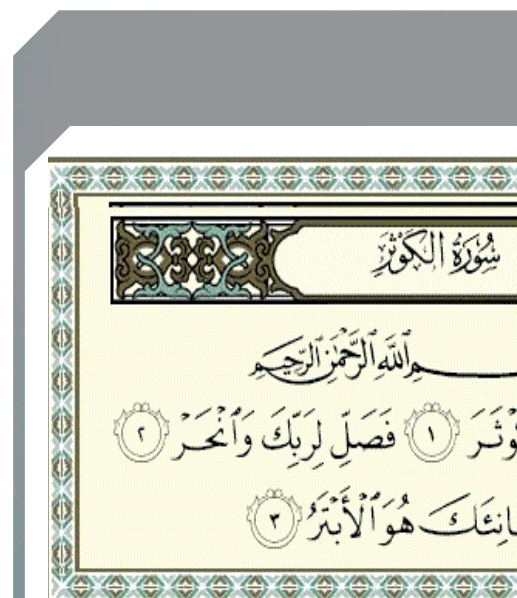 سُورَةُ الكَوْثَرِ
ٱللَّهِ ٱلرَّحْمَٰنِ ٱلرَّحِيمِ
١ فَصَلِّ لِرَبِّكَ وَٱنْحَرْ ٢
هُوَ ٱلْأَبْتَرُ ٣